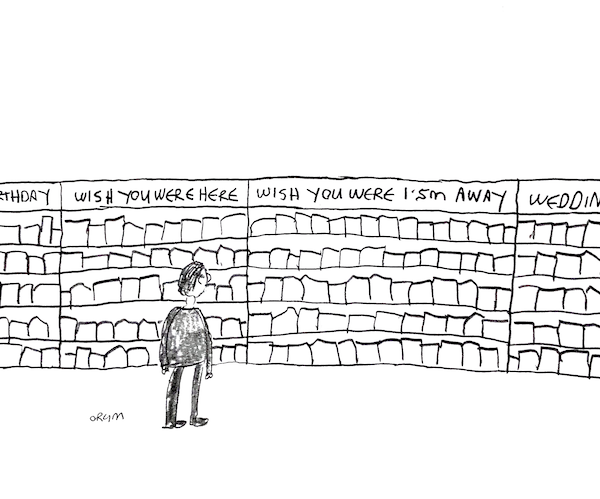 RTHDAY
WISH YOU WERE HERE
WISH YOU WERE 1.5m AWAY
WEDDIN
ORYM